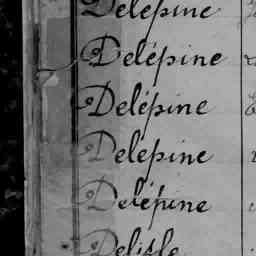 Delépine
Delépine
Delépine
Delépine
Delépine
Delisle